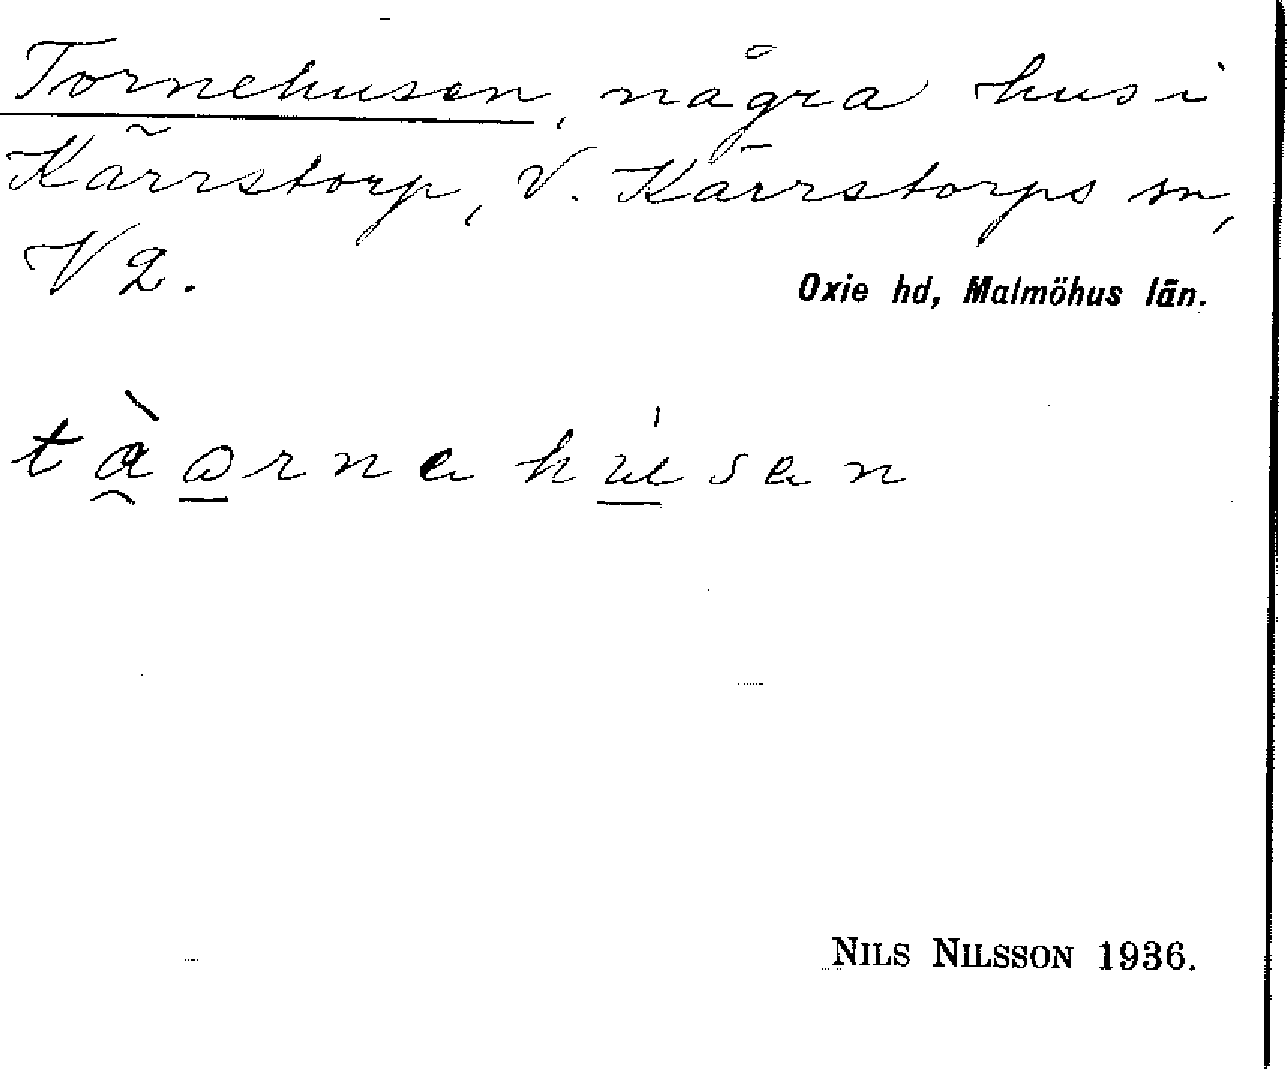 Tornehusen, några hus i
Kärrstorp, V. Kärrstorps sn,
V 2.
Oxie hd, Malmöhus län.
tàornahúsan
NILS NILSSON 1936.